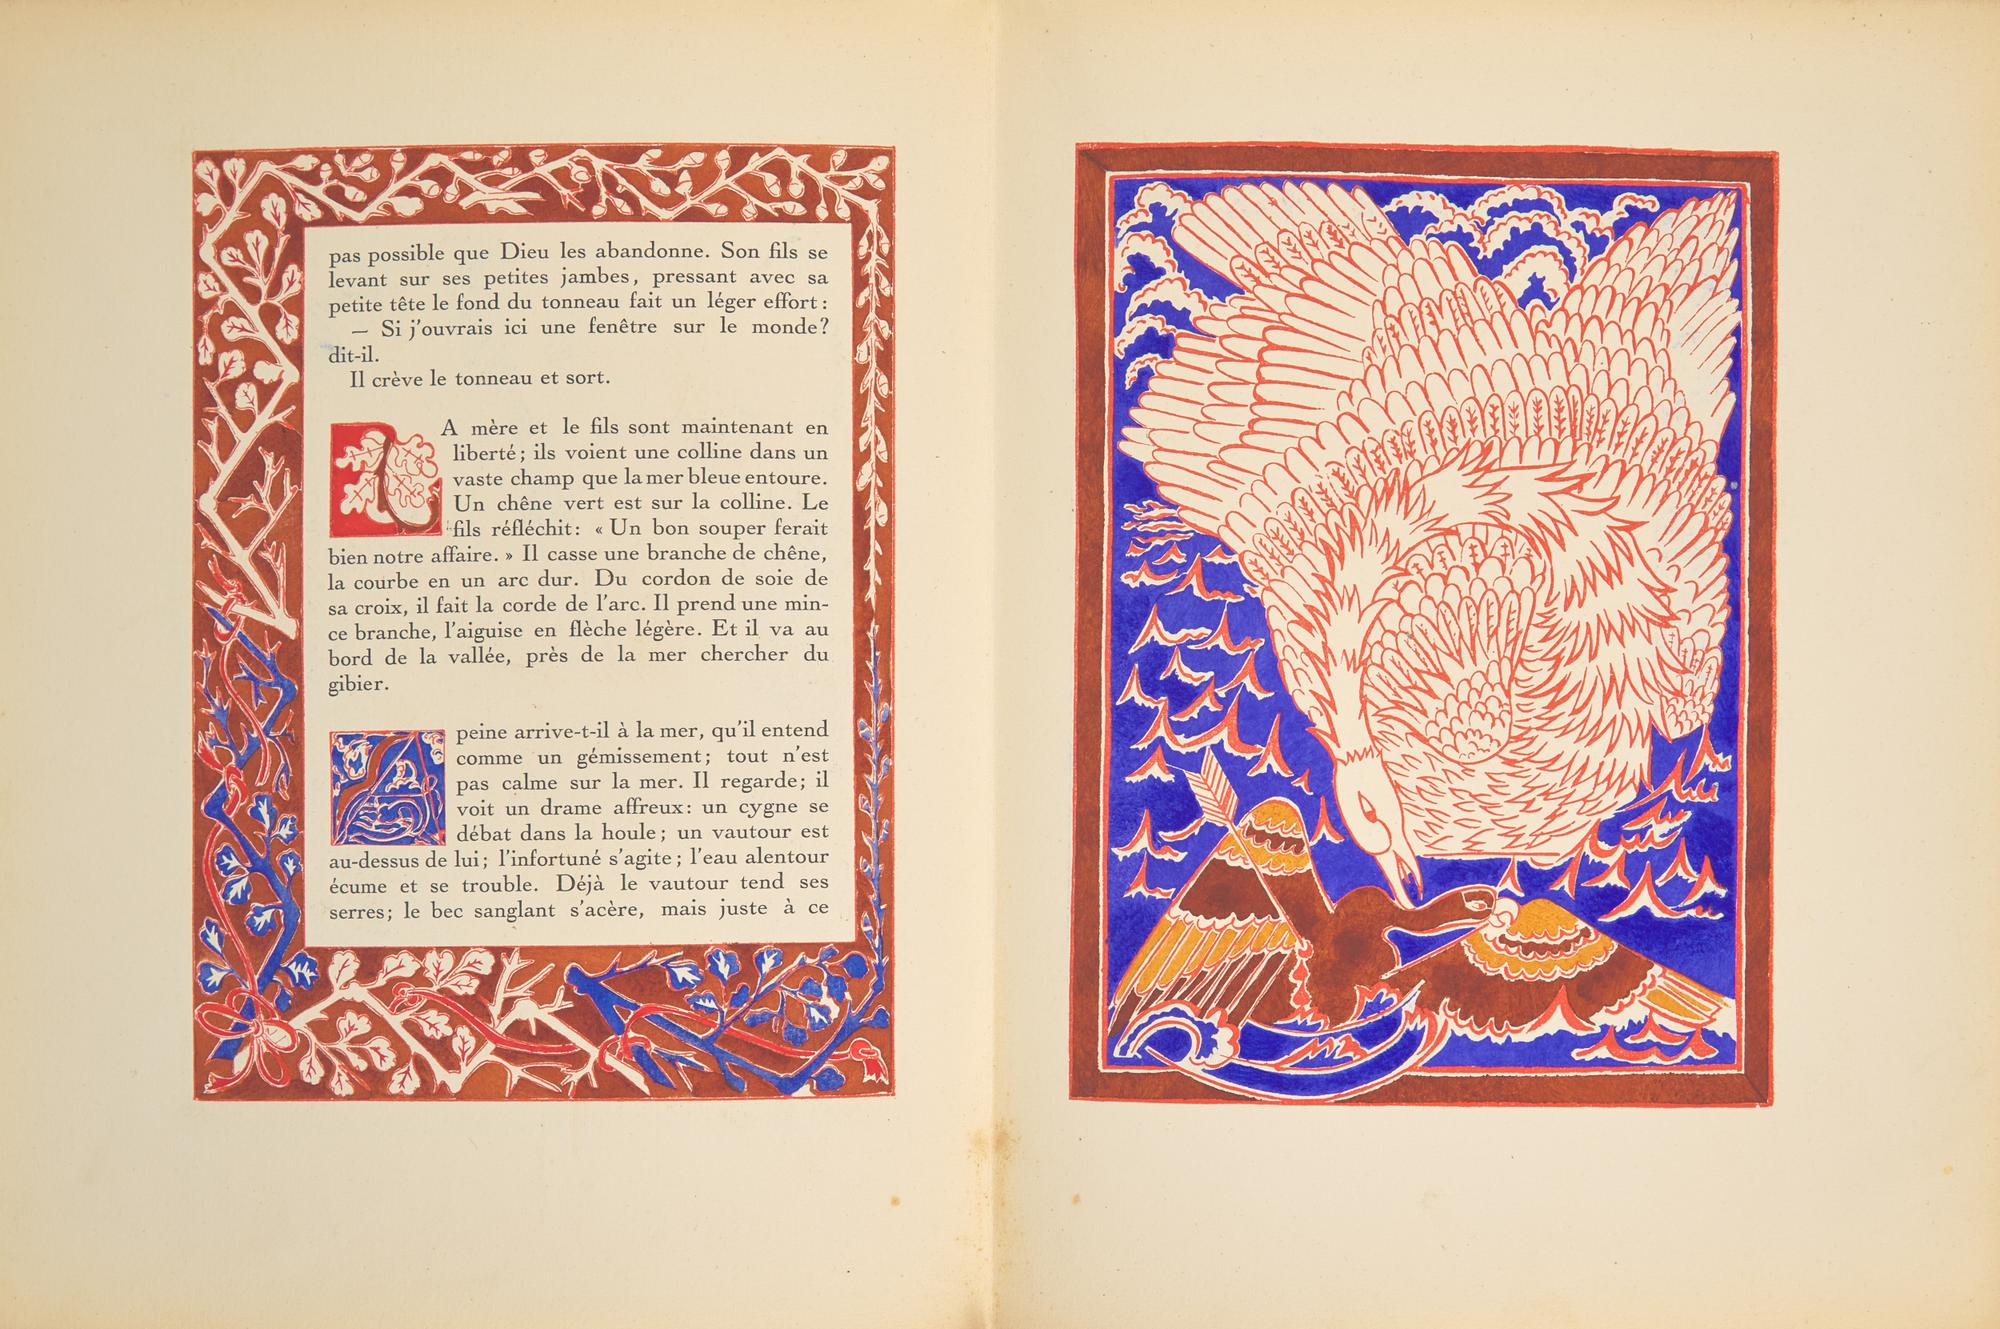 pas possible que Dieu les abandonne. Son fils se
levant sur ses petites jambes, pressant avec sa
petite tête le fond du tonneau fait un léger effort :
— Si j'ouvrais ici une fenêtre sur le monde?
dit-il.
Il crève le tonneau et sort.
LA mère et le fils sont maintenant en
liberté ; ils voient une colline dans un
vaste champ que la mer bleue entoure.
Un chêne vert est sur la colline. Le
fils réfléchit : « Un bon souper ferait
bien notre affaire. » Il casse une branche de chêne,
la courbe en un arc dur. Du cordon de soie de
sa croix, il fait la corde de l'arc. Il prend une min-
ce branche, l'aiguise en flèche légère. Et il va au
bord de la vallée, près de la mer chercher du
gibier.
A peine arrive-t-il à la mer, qu'il entend
comme un gémissement ; tout n'est
pas calme sur la mer. Il regarde ; il
voit un drame affreux : un cygne se
débat dans la houle ; un vautour est
au-dessus de lui ; l'infortuné s'agite ; l'eau alentour
écume et se trouble. Déjà le vautour tend ses
serres ; le bec sanglant s'acère, mais juste à ce